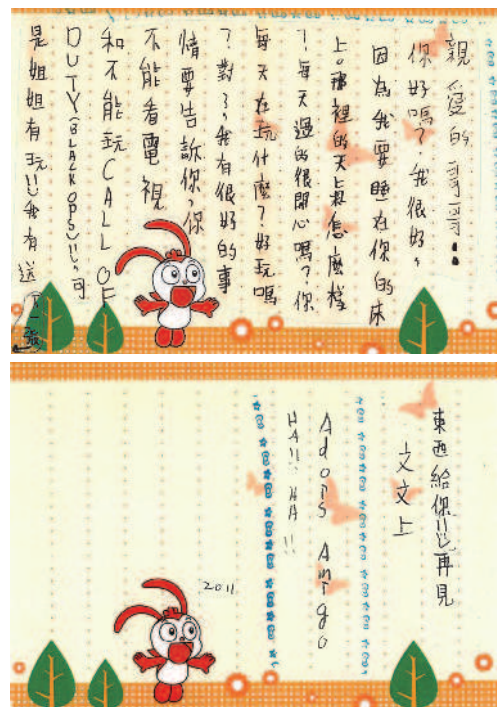 親愛的哥哥:
你好嗎?我很好,
因為我要睡在你的床
上。那裡的天上是怎麼樣
?每天過的很開心嗎?你
每天在玩什麼?好玩嗎
?對了,我有很好的事
情要告訴你,你
不能看電視
和不能玩CALL OF
DUTY(BLACK OPS)!!,可
是姐姐有玩!!我有送
東西給你!!再見
文文上
Adops Amigo
HA!! HA!!
2011